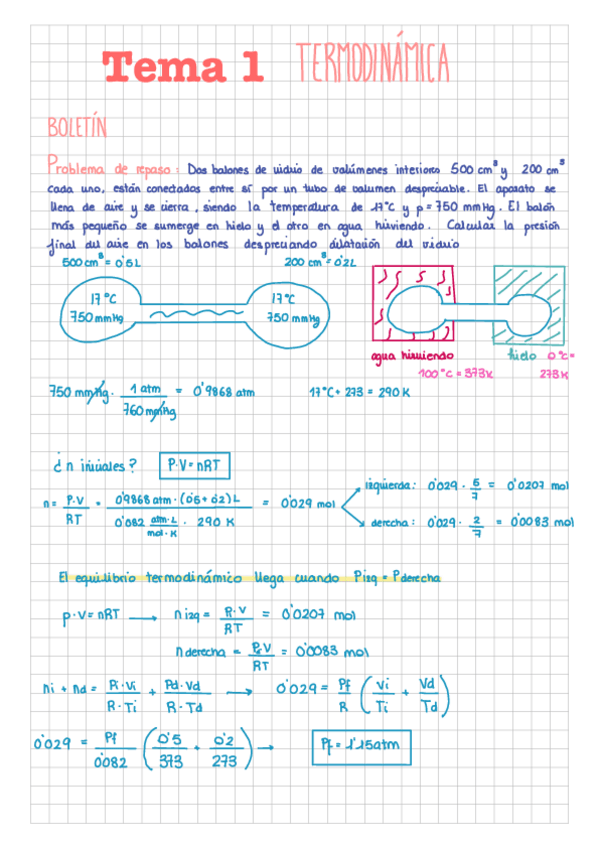 Tema 1 TERMODINÁMICA
BOLETÍN
Problema de repaso: Dos balones de vidrio de volúmenes interiores 500 cm³ y 200 cm³
cada uno, están conectados entre sí por un tubo de volumen despreciable. El aparato se
llena de aire y se cierra, siendo la temperatura de 17°C y p = 750 mmHg. El balón
más pequeño se sumerge en hielo y el otro en agua hirviendo. Calcular la presión
final del aire en los balones despreciando dilatación del vidrio
500 cm³ = 0'5L 200 cm³ = 0'2L
17°C 17°C
750 mmHg 750 mmHg
agua hirviendo hielo 0°C =
100°C = 373K 273K
750 mmHg · 1 atm / 760 mmHg = 0'9868 atm 17°C + 273 = 290 K
¿n iniciales? P·V = nRT
n = P·V / RT = 0'9868 atm · (0'5 + 0'2)L / 0'082 atm·L / mol·K · 290 K = 0'029 mol
izquierda: 0'029 · 5/7 = 0'0207 mol
derecha: 0'029 · 2/7 = 0'0083 mol
El equilibrio termodinámico llega cuando Pizq = Pderecha
p·V = nRT → n izq = P·V / RT = 0'0207 mol
n derecha = P·V / RT = 0'0083 mol
ni + nd = Pi·Vi / R·Ti + Pd·Vd / R·Td → 0'029 = Pf / R (Vi / Ti + Vd / Td)
0'029 = Pf / 0'082 (0'5 / 373 + 0'2 / 273) → Pf = 1'15atm